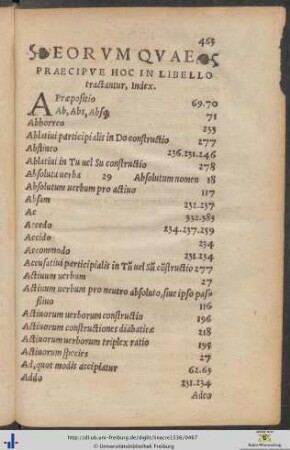 463
EORVM QVAE
PRAECIPVE HOC IN LIBELLO
tractantur, Index.
A Præpositio 69.70
Ab, Abs, Absq; 71
Abhorreo 233
Ablatiui participialis in Do constructio 277
Abstineo 236.231.246
Ablatiui in Tu uel Su constructio 278
Absoluta uerba 29 Absolutum nomen 18
Absolutum uerbum pro actiuo 117
Absum 232.237
Ac 332.383
Accedo 234.237.259
Accido 234
Accommodo 231.234
Accusatiui participialis in Tū uel Sū cōstructio 277
Actiuum uerbum 27
Actiuum uerbum pro neutro absoluto, siue ipso pas-
siuo 116
Actiuorum uerborum constructio 196
Actiuorum constructiones diabaticæ 218
Actiuorum uerborum triplex ratio 195
Actiuorum species 27
Ad, quot modis accipiatur 62.63
Addo 231.234
Adeo
http://dl.ub.uni-freiburg.de/diglit/linacre1536/0467
© Universitätsbibliothek Freiburg
Baden-Württemberg